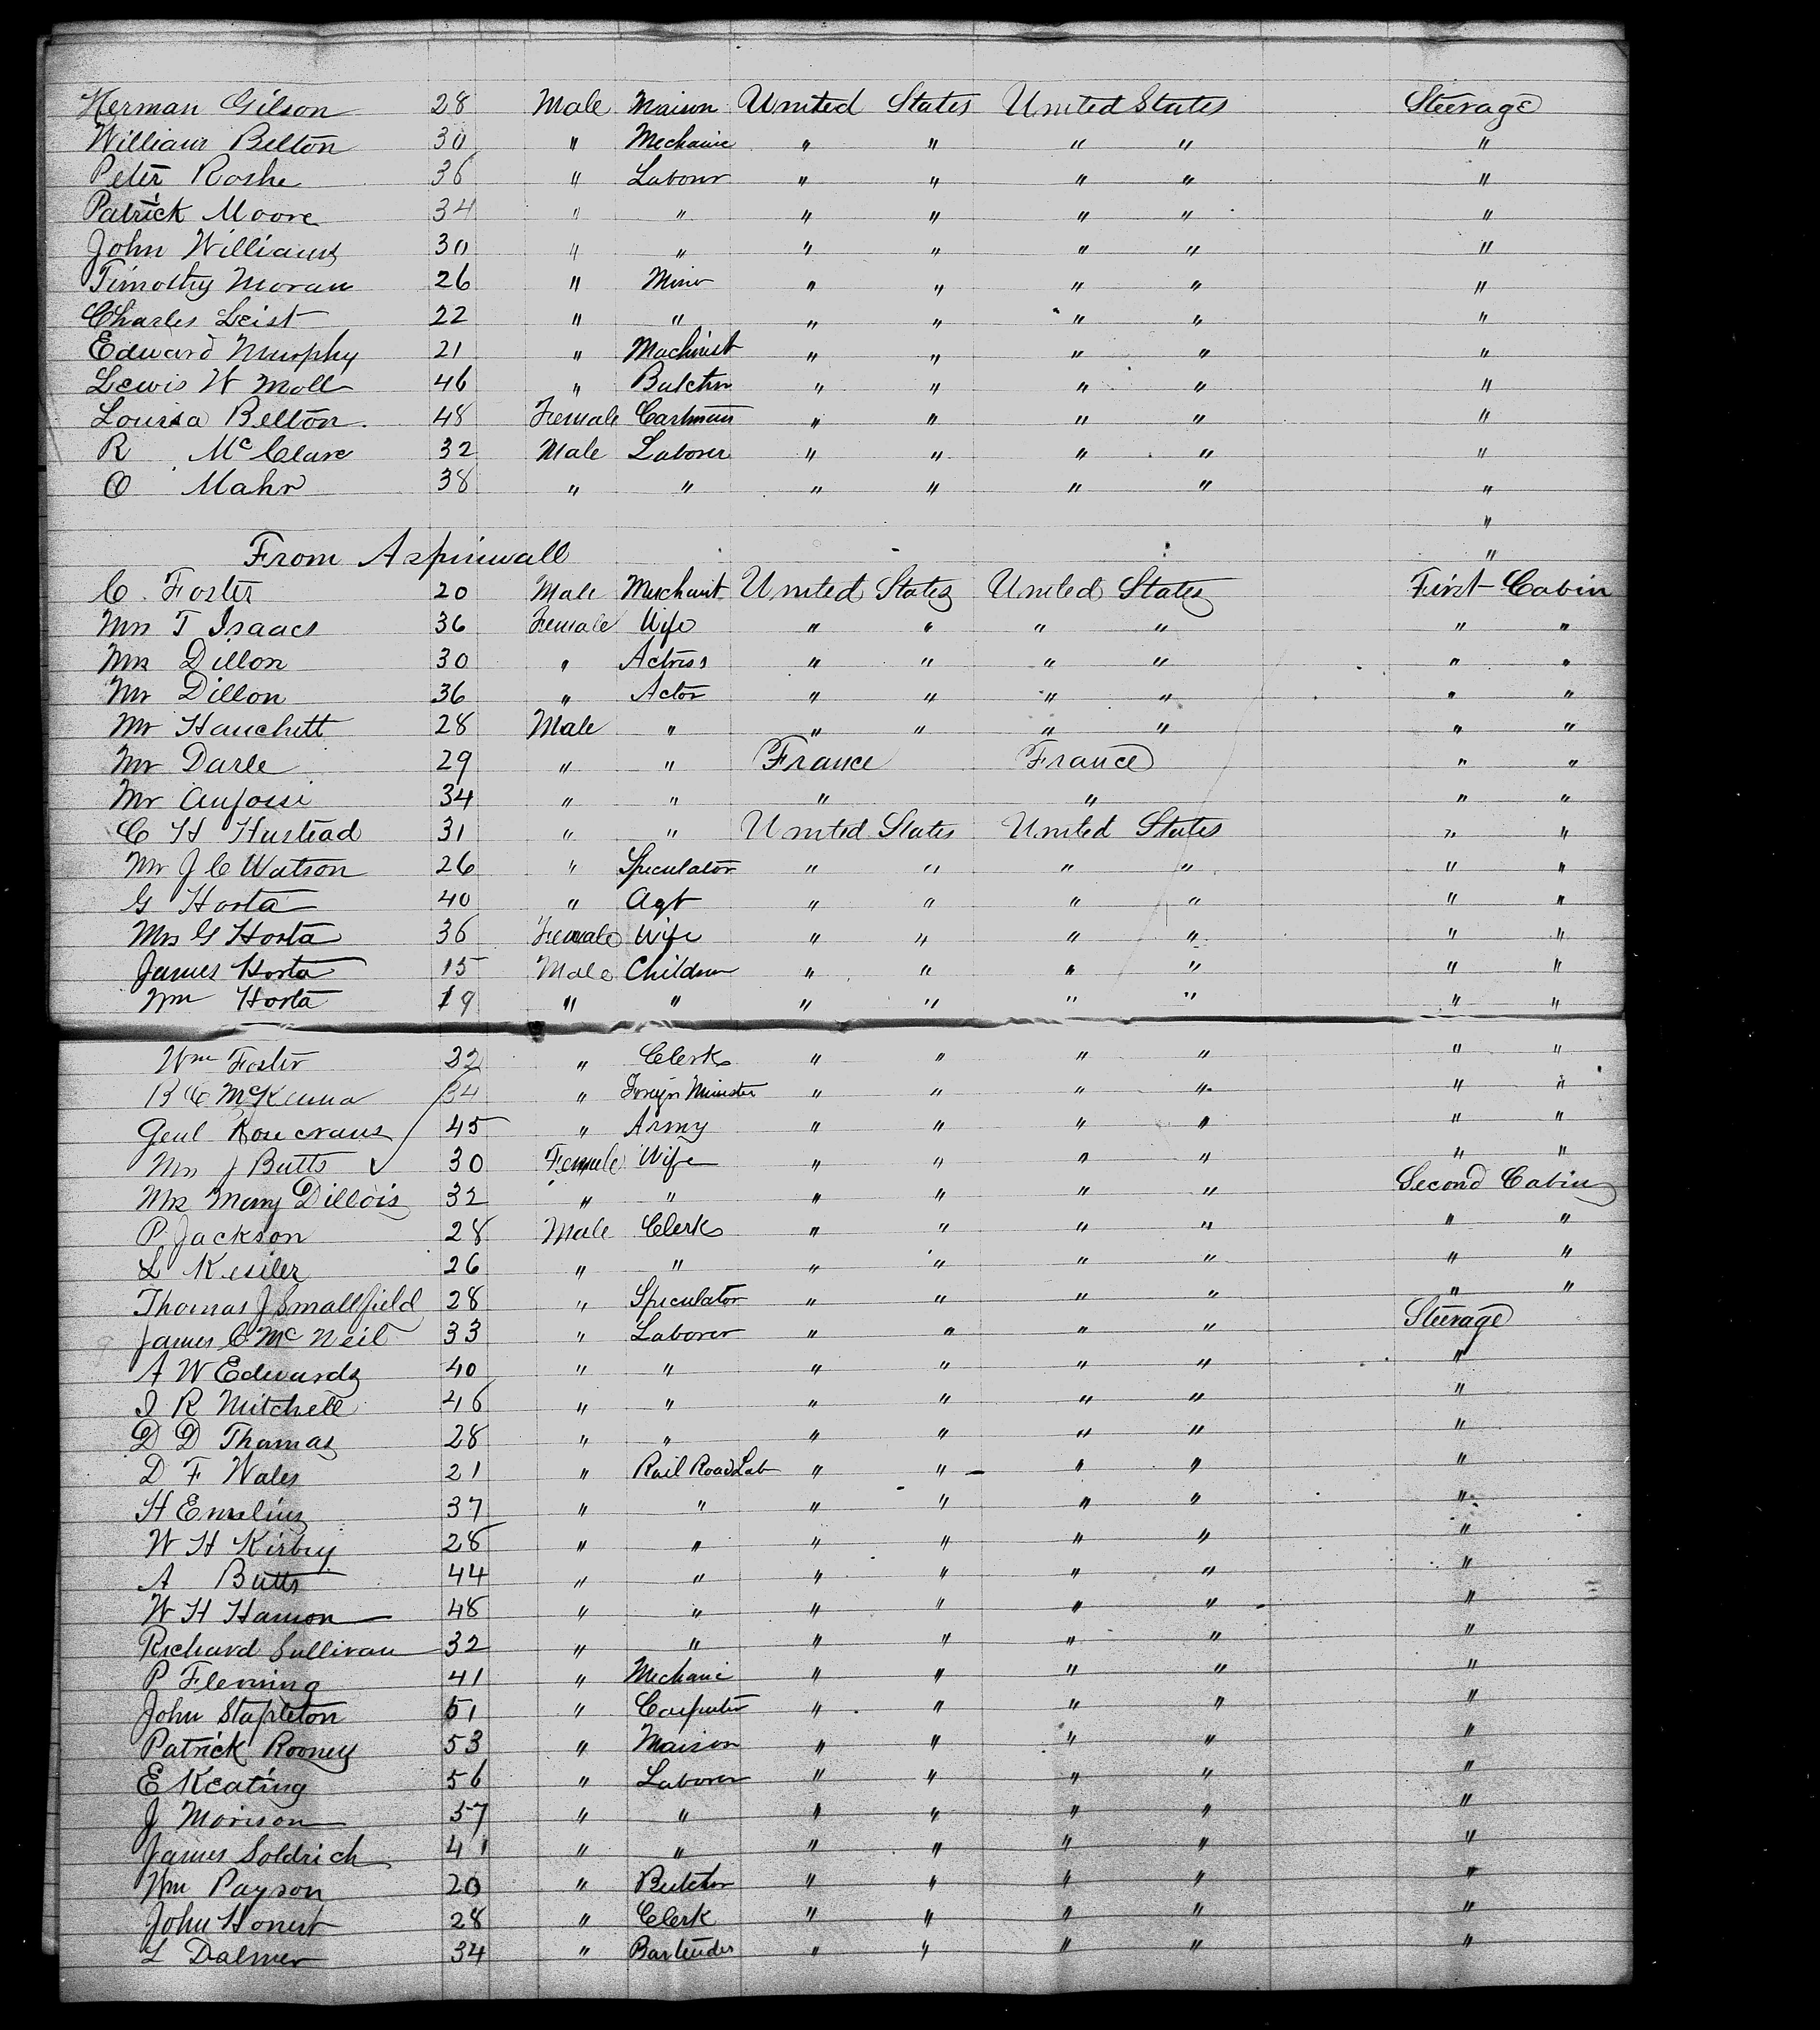 Herman Gilson 28 Male Maison United States United States Steerage
William Belton 30 " Mechanic " " " " "
Peter Roshe 36 " Labour " " " " "
Patrick Moore 34 " " " " " " "
John Williams 30 " " " " " " "
Timothy Moran 26 " Minor " " " " "
Charles Leist 22 " " " " " " "
Edward Murphy 21 " Machinist " " " " "
Lewis W Moll 46 " Butcher " " " " "
Louisa Belton 48 Female Cartman " " " " "
R McClare 32 Male Laborer " " " " "
O Mahr 38 " " " " " " "
"
From Aspinwall "
C. Foster 20 Male Merchant United States United States First Cabin
Mrs T Isaacs 36 Female Wife " " " " " "
Mrs Dillon 30 " Actress " " " " " "
Mr Dillon 36 " Actor " " " " " "
Mr Hanchett 28 Male " " " " " " "
Mr Darle 29 " " France France " "
Mr 34 " " " " " "
C H Hustead 31 " " United States United States " "
Mr J C Watson 26 " Speculator " " " " " "
G Horta 40 " Agt " " " " " "
Mrs G Horta 36 Female Wife " " " " " "
James Horta 15 Male Children " " " " " "
Wm Horta 19 " " " " " " " "
Wm Foster 32 " Clerk " " " " " "
McKenna 34 " Foreign Minister " " " " " "
Genl Rosecrans 45 " Army " " " " " "
Mrs J Butts 30 Female Wife " " " " " "
Mrs Mary Dillois 32 " " " " " " Second Cabin
P. Jackson 28 Male Clerk " " " " " "
L Kesiler 26 " " " " " " " "
Thomas J Smallfield 28 " Speculator " " " " " "
James C McNeil 33 " Laborer " " " " Steerage
A W Edwards 40 " " " " " " "
I R Mitchell 46 " " " " " " "
D D Thomas 28 " " " " " " "
D F Wales 21 " Rail Road Lab " " " " "
H Emslins 37 " " " " " " "
W H Kirby 28 " " " " " " "
A Butts 44 " " " " " " "
W H Hamon 48 " " " " " " "
Richard Sullivan 32 " " " " " " "
P Fleming 41 " Mechanic " " " " "
John Stapleton 51 " Carpenter " " " " "
Patrick Rooney 53 " Maison " " " " "
E Keating 56 " Laborer " " " " "
J Morison 37 " " " " " " "
James Soldrich 41 " " " " " " "
Wm Payson 20 " Butcher " " " " "
John Honest 28 " Clerk " " " " "
L Dalmer 34 " Bartender " " " " "